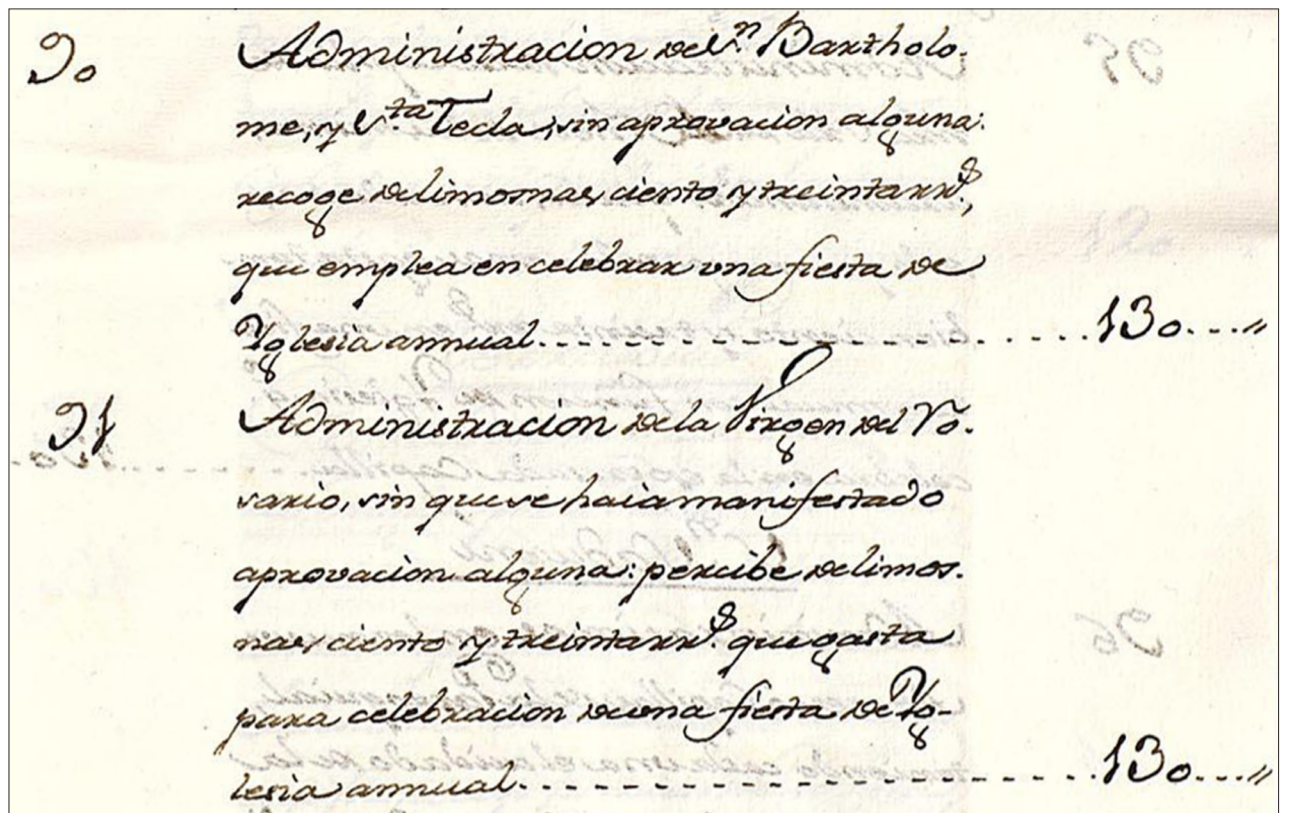 90 Administracion de S.n Bartholo-
me, y S.ta Tecla, sin aprovacion alguna:
recoge de limosnas, ciento, y treinta rr.s,
que emplea en celebrar una fiesta de
Yglesia annual. 130
91 Administracion de la Virgen del Ro-
sario, sin que se haia manifestado
aprovacion alguna: percibe de limos-
nas, ciento y treinta rr.s que gasta
para celebracion de una fiesta de Yg-
lesia annual. 130